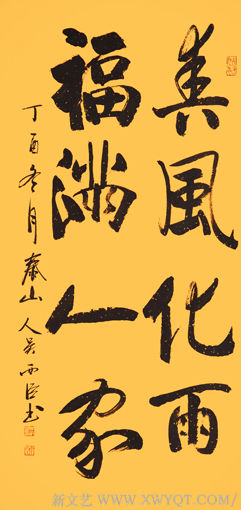 春風化雨
福满人家
丁酉冬月泰山人吴西臣书
新文艺 WWW.XWYQT.COM